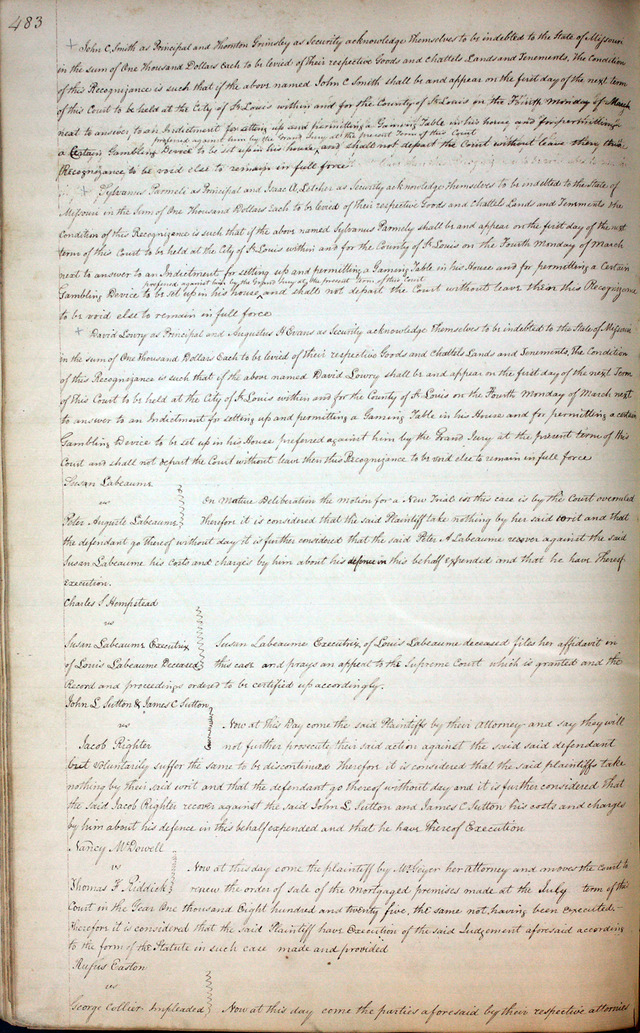 483
John C. Smith as Principal and Thornton Grimsley as Security acknowledge Themselves to be indebted to the State of Missouri
in the sum of One Thousand Dollars Each to be levied of their respective Goods and Chattels Lands and Tenements, The Condition
of this Recognizance is such that if the above named John C Smith shall be and appear on the first day of the next term
of this Court to be held at the City of St Louis within and for the County of St Louis on the Fourth Monday of March
next to answer to an Indictment for setting up and permitting a Gaming Table in his house, and for permitting
preferred against him by the Grand Jury at the present Term of this Court
a Certain Gambling Device to be set up in his house, and shall not depart the Court without leave then this
Recognizance to be void else to remain in full force
Sylvanus Parmele as Principal and Isaac A, Letcher as Security acknowledge themselves to be indebted to the State of
Missouri in the Sum of One Thousand Dollars Each to be levied of their respective Goods and Chattels Lands and Tenements, the
Condition of this Recognizance is such that if the above named Sylvanus Parmely shall be and appear on the first day of the next
term of this Court to be held at the City of St Louis within and for the County of St Louis on the Fourth Monday of March
next to answer to an Indictment for setting up and permitting a Gaming Table in his House and for permitting a Certain
preferred against him by the Grand Jury at the present term of this Court
Gambling Device to be set up in his house, and shall not depart the Court without leave then this Recognizance
to be void else to remain in full force
David Lowry as Principal and Augustus H Evans as Security acknowledge Themselves to be indebted to the State of Missouri
in the sum of One Thousand Dollars Each to be levied of their respective Goods and Chattels Lands and Tenements, The Condition
of this Recognizance is such that if the above named David Lowry shall be and appear on the first day of the next Term
of this Court to be held at the City of St Louis within and for the County of St Louis on the Fourth Monday of March next
to answer to an Indictment for setting up and permitting a Gaming Table in his House and for permitting a certain
Gambling Device to be set up in his House preferred against him by the Grand Jury at the present term of this
Court and shall not depart the Court without leave then this Recognizance to be void else to remain in full force
Susan Labeaume
vs
On Mature Deliberation the motion for a New Trial in this case is by the Court overruled
Peter Auguste Labeaume
Therefore it is considered that the said Plaintiff take nothing by her said writ and that
the defendant go thereof without day it is further considered that the said Peter A Labeaume recover against the said
Susan Labeaume his costs and charges by him about his defence in this behalf expended and that he have Thereof
Execution.
Charles S Hempstead
vs
Susan Labeaume Executrix
of Louis Labeaume Deceased
Susan Labeaume Executrix, of Louis Labeaume deceased files her affidavit in
this case and prays an appeal to the Supreme Court which is granted and the
Record and proceedings ordered to be certified up accordingly.
John L Sutton & James C Sutton
vs
Now at this Day come the said Plaintiffs by their Attorney and say they will
Jacob Righter
not further prosecute their said action against the said said defendant
but voluntarily suffer the same to be discontinued Therefore it is considered that the said plaintiffs take
nothing by their said writ and that the defendant go thereof without day and it is further considered That
the said Jacob Righter recover against the said John L Sutton and James C Sutton his costs and charges
by him about his defence in this behalf expended and that he have thereof Execution
Nancy McDowell
vs
Now at this day come the plaintiff by McGeyer her attorney and moves the Court to
Thomas F Riddick
renew the order of sale of the mortgaged premises made at the July term of the
Court in the Year One thousand Eight hundred and twenty five, the same not having been executed
Therefore it is considered that the said Plaintiff have Execution of the said Judgement aforesaid according
to the form of the Statute in such case made and provided
Rufus Easton
vs
George Collier Impleaded
Now at this day come the parties aforesaid by their respective attornies